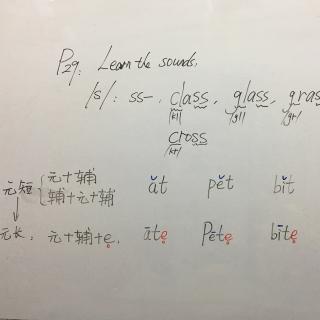 P29: Learn the sounds.
/s/: ss-, class, glass, gras
/kl/ /gl/ /gr/
cross
/kr/
元短 { 元+辅 ăt pĕt bĭt
辅+元+辅
↓
元长: 元+辅+e. āte Pēte bīte